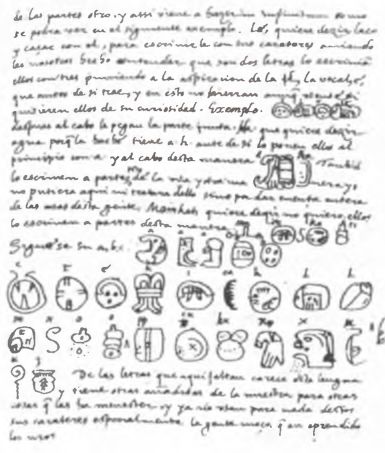 de las partes otro, y assi viene a hazer in infinitum como
se podra ver en el siguiente exemplo. Lé, quiere dezir laço
y caçar con el, para escrivirle con sus carateres aviendo
les nosotros hecho entender que son dos letras lo escrivian
ellos con tres puniendo a la aspiracion de la l la vocal é,
que antes de si trae, y en esto no hierran
quisieren ellos de su curiosidad. Exemplo.
despues al cabo le pegan la parte junta. Ha que quiere dezir
agua porq la tiene a. h. ante de si lo ponen ellos al
principio con a y al cabo desta manera Tambie
lo escriven a partes de la una y otra manera yo
no pusiera aqui ni tratara dello sino por dar cuenta entera
de las cosas desta gente. Mainkati quiere dezir no quiero, ellos
lo escriven a partes desta manera
Siguese su a.b.c.
De las letras que aqui faltan carece esta lengua
y tiene otras añadidas de la nuestra para otras
cosas q las ha menester, y ya no usan para nada destos
sus carateres especialmente la gente moça q an aprendido
los nros